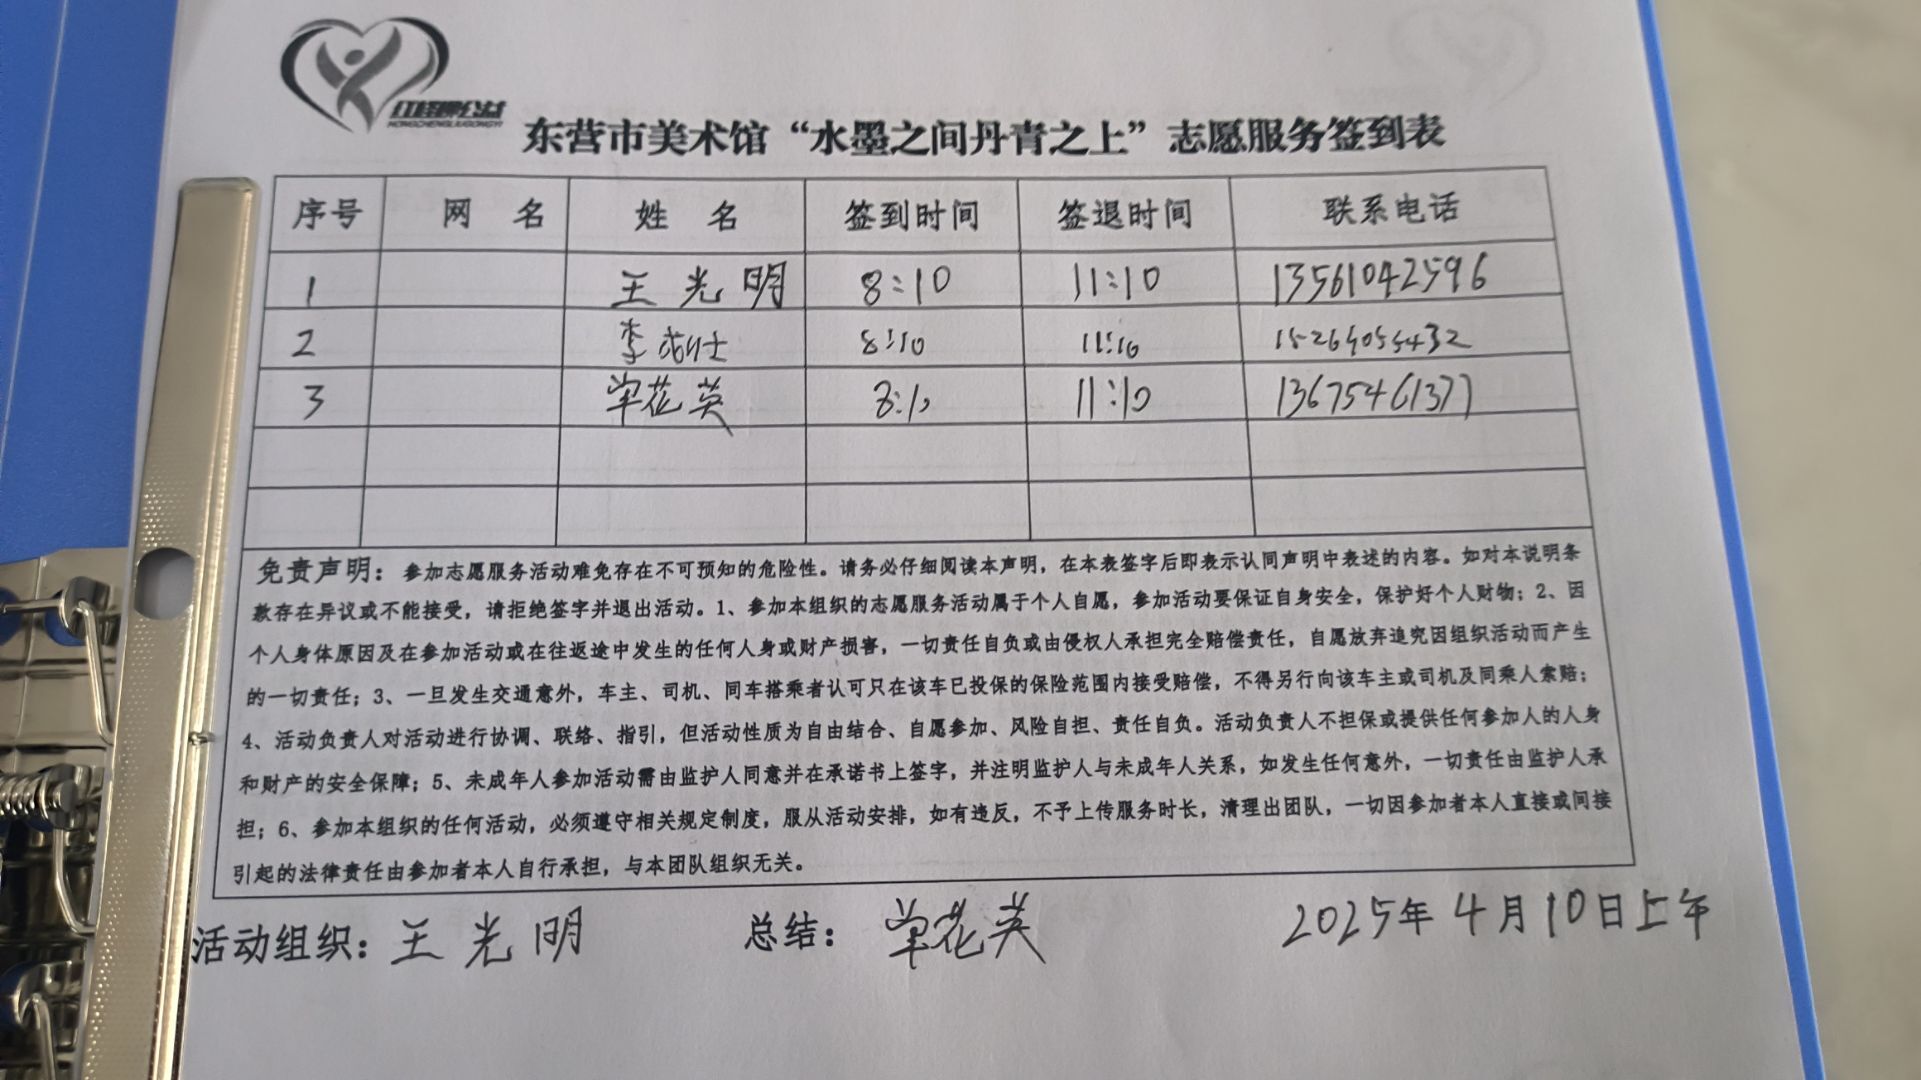 红柽柳公益
HONGCHENGLIUGONGYI
东营市美术馆“水墨之间丹青之上”志愿服务签到表
序号 网 名 姓 名 签到时间 签退时间 联系电话
1 王光明 8:10 11:10 13561042596
2 李成仕 8:10 11:10 15269055432
3 单花英 8:10 11:10 13675461377
免责声明：参加志愿服务活动难免存在不可预知的危险性。请务必仔细阅读本声明，在本表签字后即表示认同声明中表述的内容。如对本说明条
款存在异议或不能接受，请拒绝签字并退出活动。1、参加本组织的志愿服务活动属于个人自愿，参加活动要保证自身安全，保护好个人财物；2、因
个人身体原因及在参加活动或在往返途中发生的任何人身或财产损害，一切责任自负或由侵权人承担完全赔偿责任，自愿放弃追究因组织活动而产生
的一切责任；3、一旦发生交通意外，车主、司机、同车搭乘者认可只在该车已投保的保险范围内接受赔偿，不得另行向该车主或司机及同乘人索赔；
4、活动负责人对活动进行协调、联络、指引，但活动性质为自由结合、自愿参加、风险自担、责任自负。活动负责人不担保或提供任何参加人的人身
和财产的安全保障；5、未成年人参加活动需由监护人同意并在承诺书上签字，并注明监护人与未成年人关系，如发生任何意外，一切责任由监护人承
担；6、参加本组织的任何活动，必须遵守相关规定制度，服从活动安排，如有违反，不予上传服务时长，清理出团队，一切因参加者本人直接或间接
引起的法律责任由参加者本人自行承担，与本团队组织无关。
活动组织：王光明 总结：单花英 2025年4月10日上午